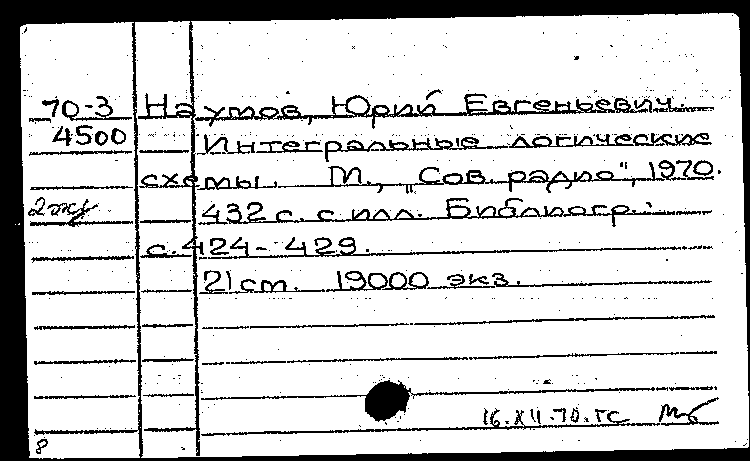 70-3 Наумов, Юрий Евгеньевич.
4500 Интегральные логические
схемы. М., „Сов. радио", 1970.
2 экз 432 с. с илл. Библиогр.:
с. 424-429.
21 cm. 19000 экз.
16.XII.70.ГС
8